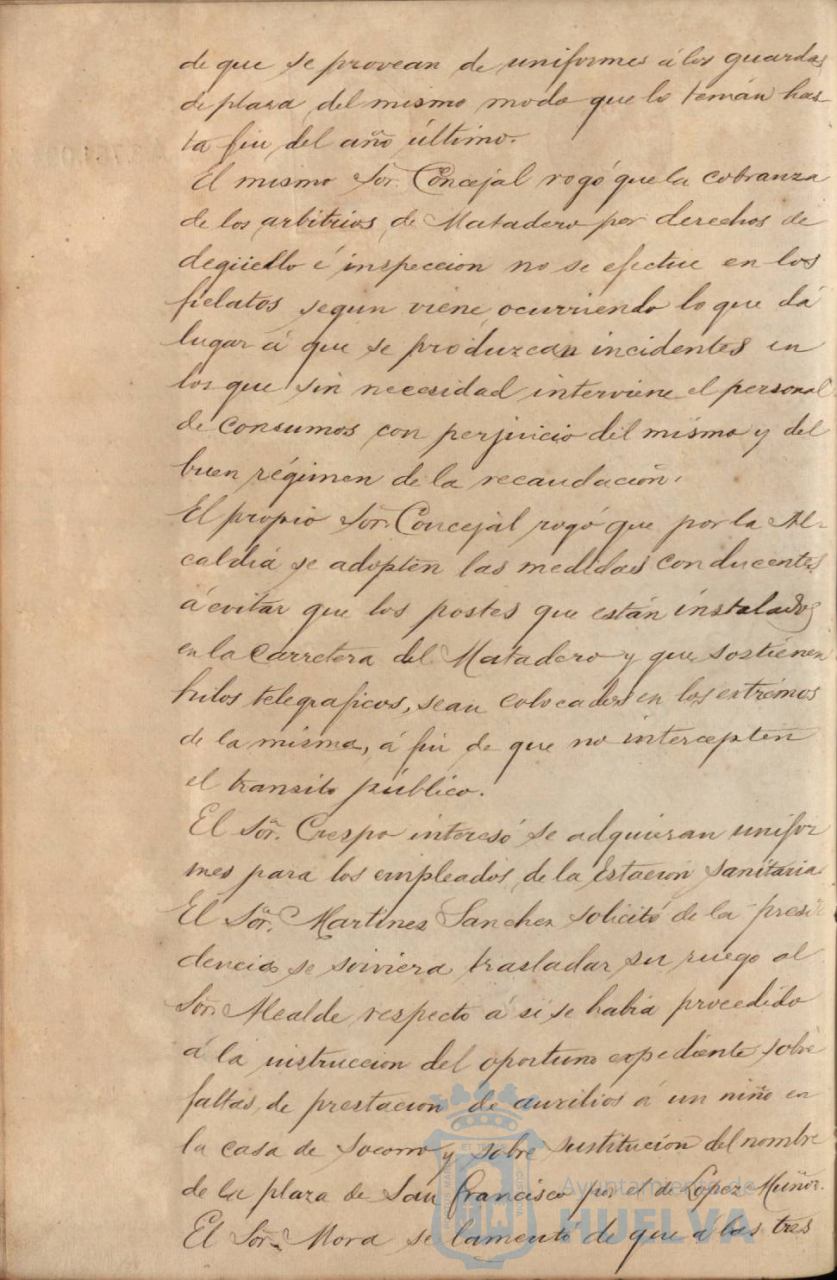 de que se provean de uniformes á los guardas
de plasa, del mismo modo que lo tenián has-
ta fin del año último.
El mismo Sor. Concejal rogó que la cobranza
de los arbitrios de Matadero por derechos de
degüello é inspeccion no se efectue en los
fielatos segun viene ocurriendo lo que dá
lugar á que se produzcan incidentes en
los que sin necesidad interviene el personal
de consumos con perjuicio del mismo y del
buen régimen de la recaudación.
El propio Sor. Concejal rogó que por la Al-
caldia se adopten las medidas conducentes
á evitar que los postes que están instalados
en la carretera del Matadero y que sostienen
hilos telegraficos, sean colocados en los extremos
de la misma, á fin de que no intercepten
el transito público.
El Sor. Crespo interesó se adquieran unifor
mes para los empleados de la Estacion Sanitaria
El Sor. Martinez Sanchez solicitó de la presi
dencia se sirviera trasladar su ruego al
Sor. Alcalde respecto á si se habia procedido
á la instruccion del oportuno expediente sobre
faltas de prestacion de auxilios á un niño en
la casa de Socorro y sobre sustitucion del nombre
de la plaza de San Francisco por el de Lopez Muñoz.
El Sor. Mora se lamentó de que á las tres
Ayuntamiento de
HUELVA